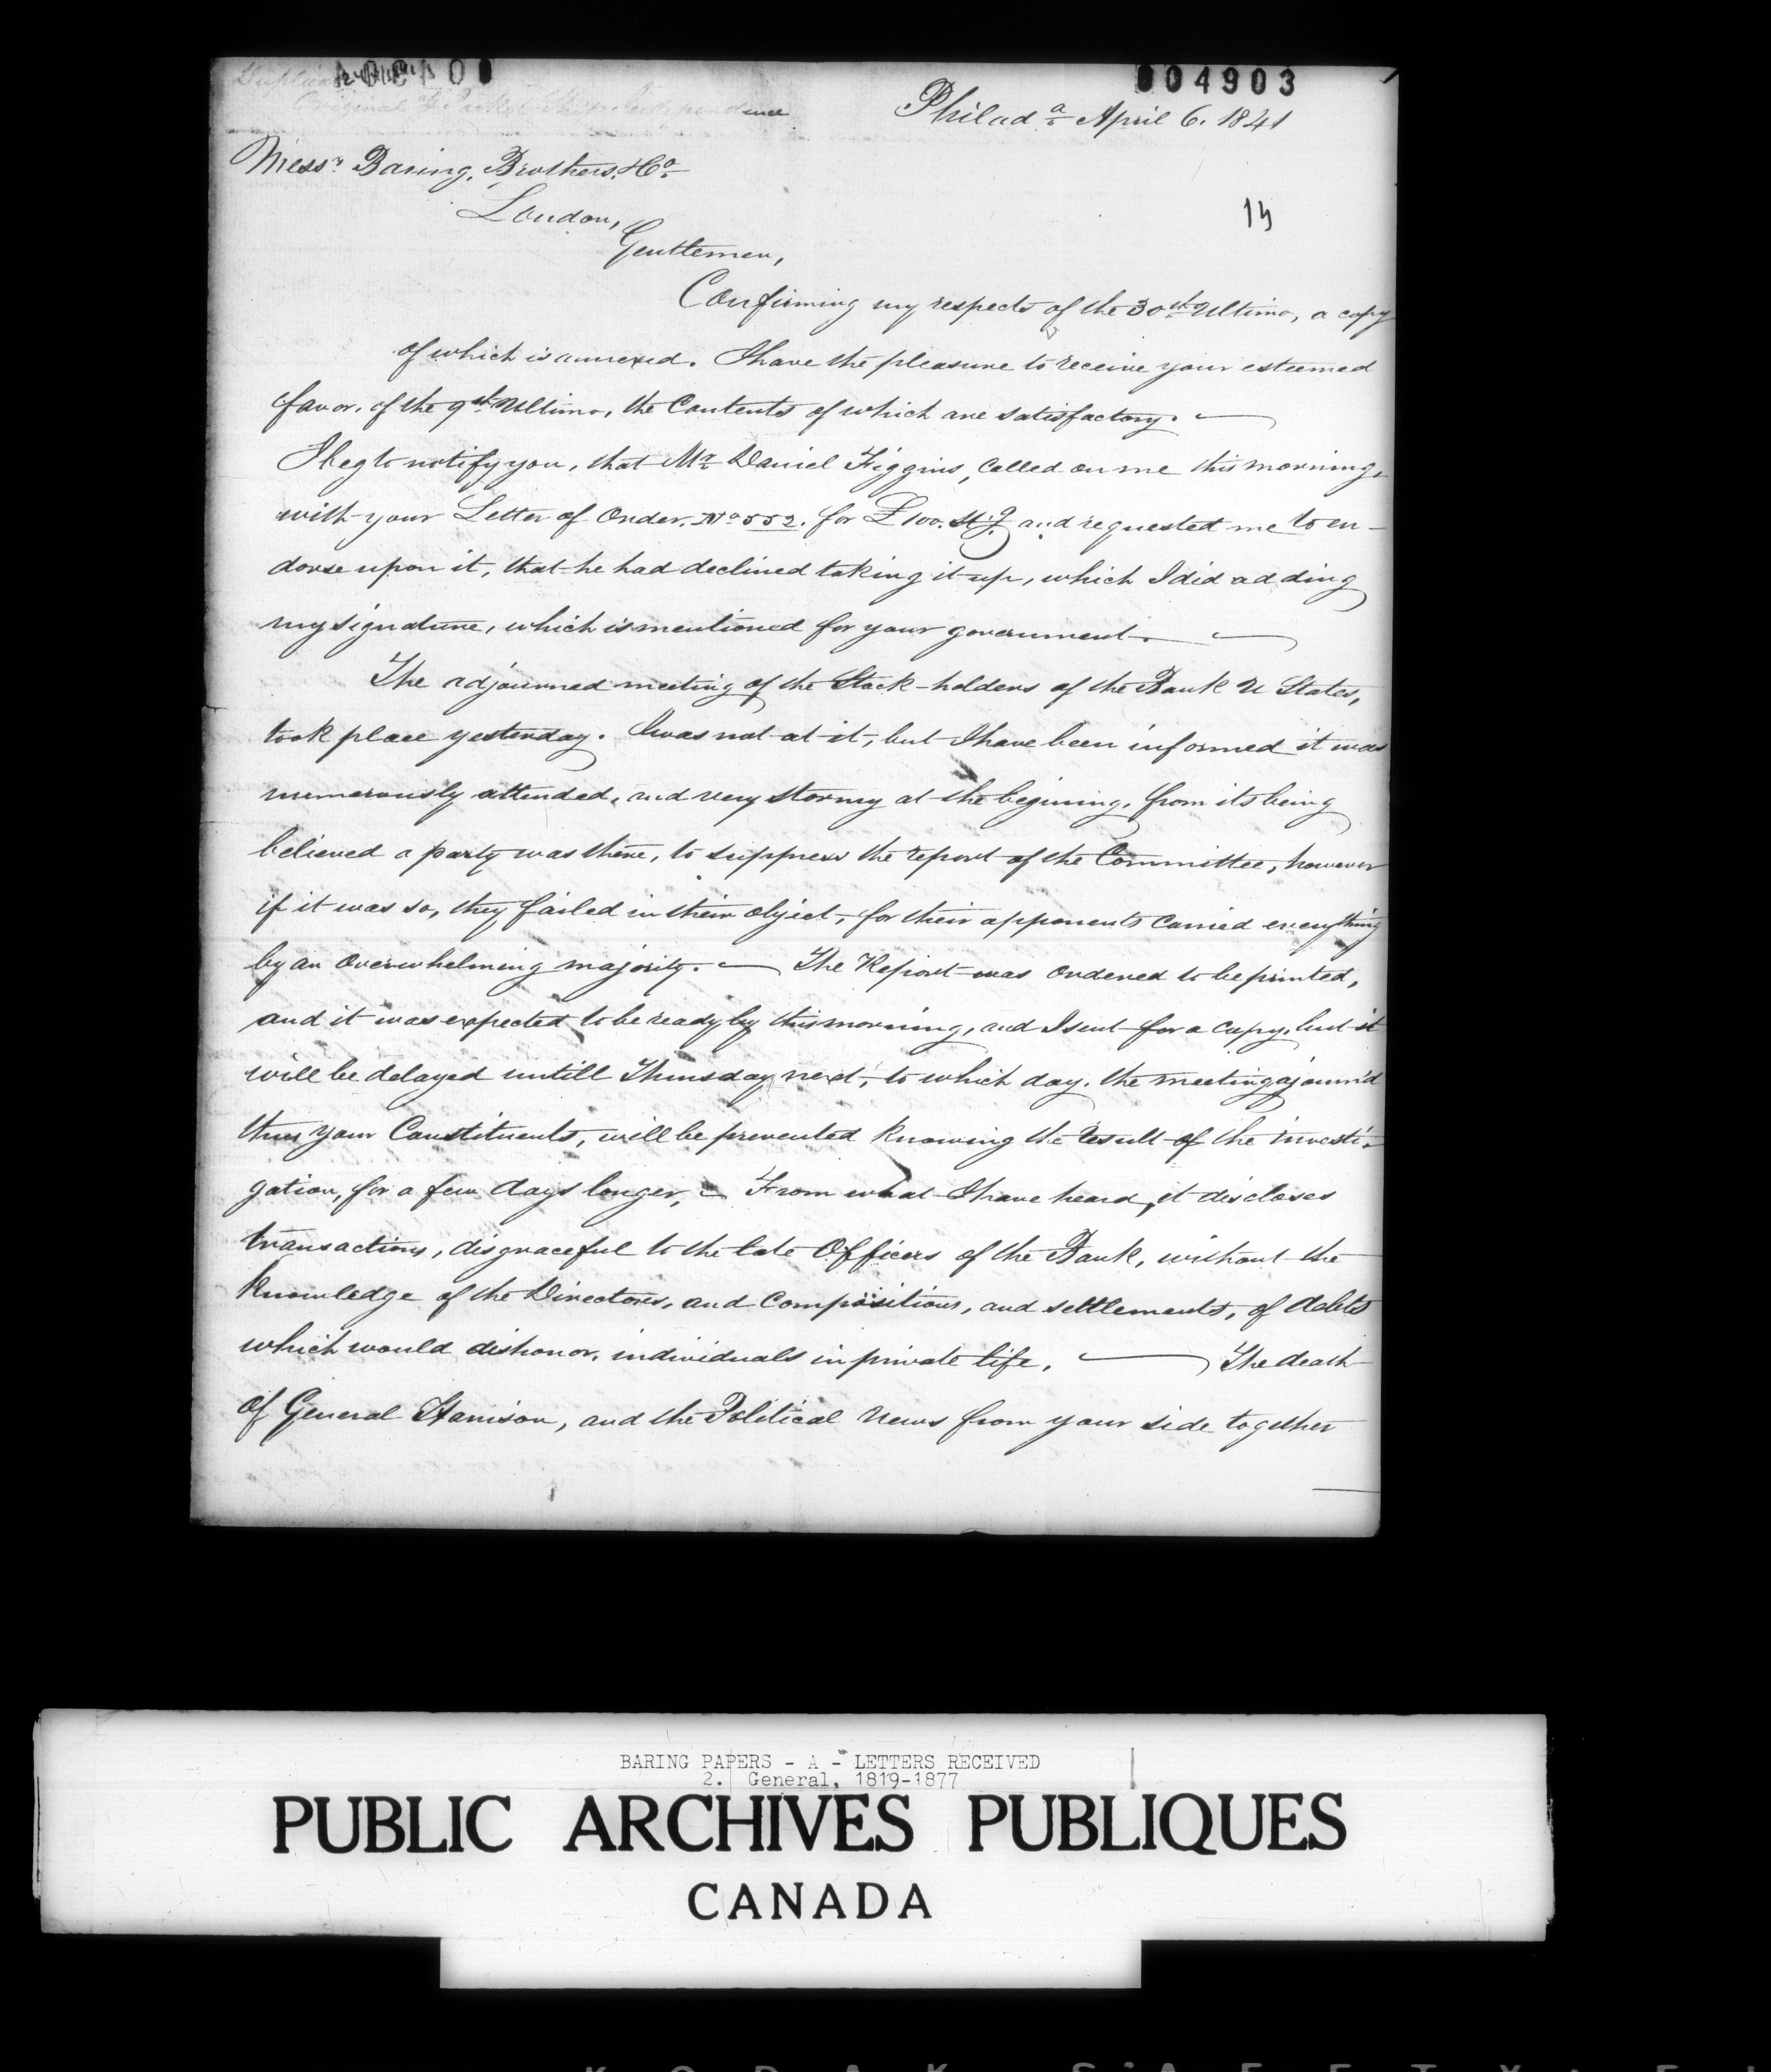 004903
Duplicate
Original ⅌ Packet Ship Independence
Philadᵃ April 6. 1841
Messʳˢ Baring, Brothers, & Cᵒ
London,
13
Gentlemen,
Confirming my respects of the 30ᵗʰ Ultimo, a copy
of which is annexed. I have the pleasure to receive your esteemed
favor, of the 9ᵗʰ Ultimo, the Contents of which are satisfactory. —
I beg to notify you, that Mʳ Daniel Figgins, called on me this morning,
with your Letter of Order, Nᵒ 552. for £100. Stᵍ and requested me to en-
dorse upon it, that he had declined taking it up, which I did adding
my signature, which is mentioned for your government. —
The adjourned meeting of the Stock-holders of the Bank U States,
took place yesterday. I was not at it, but I have been informed it was
numerously attended, and very stormy at the begining, from its being
believed a party was there, to suppress the report of the Committee, however
if it was so, they failed in their object, for their opponents carried everything
by an overwhelming majority. — The Report was ordered to be printed,
and it was expected to be ready by this morning, and I sent for a copy, but it
will be delayed untill Thursday next, to which day, the meeting ajourn'd
thus your Constituents, will be prevented knowing the result of the investi-
gation, for a few days longer, — From what I have heard, it discloses
transactions, disgraceful to the late Officers of the Bank, without the
knowledge of the Directors, and compositions, and settlements, of debts
which would dishonor, individuals in private life. — The death
of General Harrison, and the Political news from your side together
BARING PAPERS - A - LETTERS RECEIVED
2. General, 1819-1877
PUBLIC ARCHIVES PUBLIQUES
CANADA